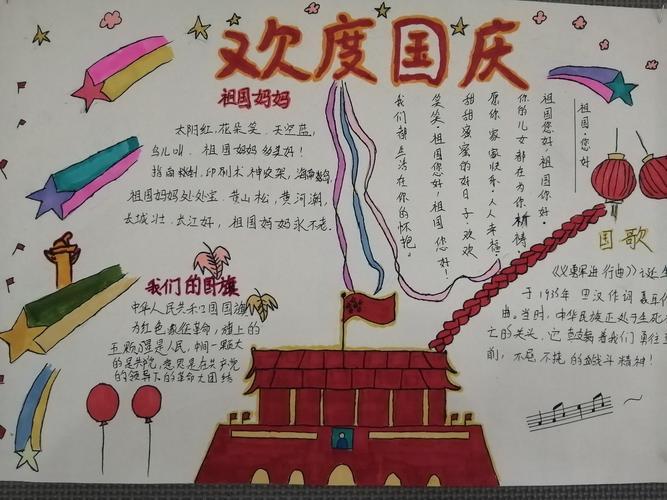 欢度国庆
祖国妈妈
太阳红，花朵笑，天空蓝，
鸟儿叫，祖国妈妈多美好！
指南
印刷术
祖国妈妈处处宝，黄山松，黄河潮，
长城壮，长江好，祖国妈妈永不老。
祖国，您好
祖国您好，祖国你好，
你的儿女都在为你祈祷，
愿你家家快乐，人人幸福，
甜甜蜜蜜的好日子，欢欢
笑笑，祖国您好，祖国您好！
我们都生活在你的怀抱。
我们的国旗
中华人民共和国国旗
为红色，象征革命，旗上的
五颗
星是人民，中间一颗大
的是共产党，意思是在共产党
的领导下的革命大团结
国歌
《义勇军进行曲》
于1935年田汉作词聂耳作
曲。当时，中华民族正处于生死存
亡的关头，它鼓舞着我们勇往直
前，不屈不挠的战斗精神！